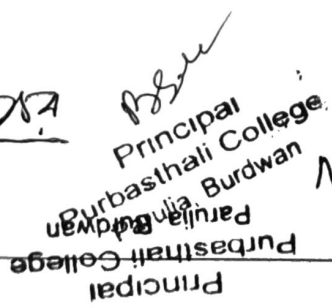 Principal
Purbasthali College
Parulia, Burdwan
Principal
Purbasthali College
Parulia, Burdwan